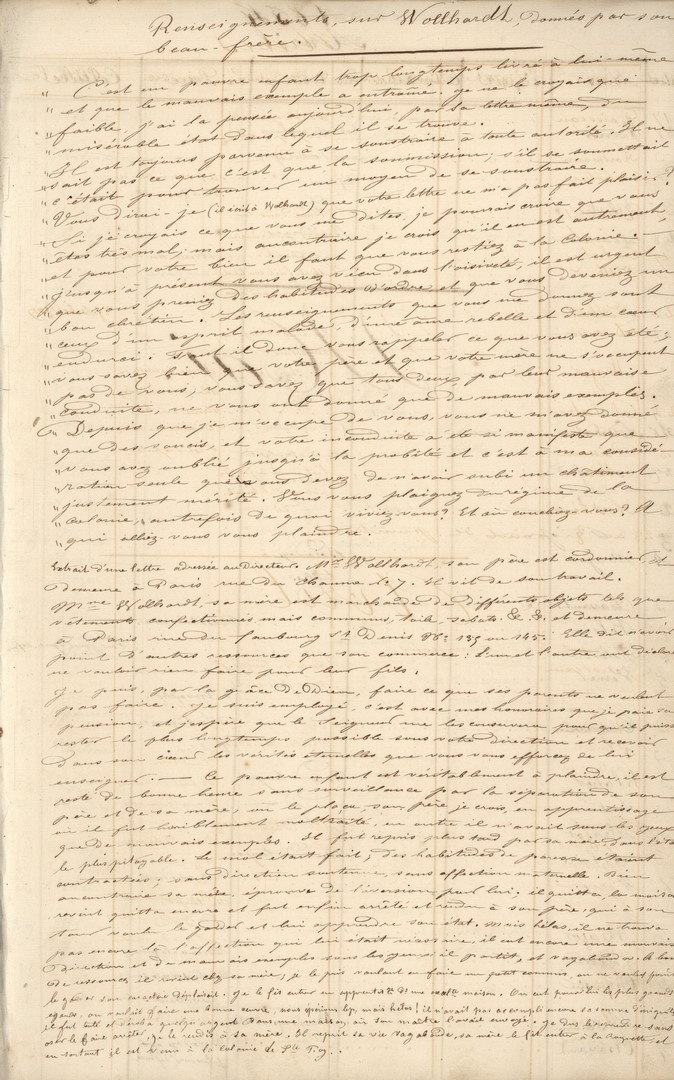 Renseignements, sur Wollhardt, donnés par son
beau-frère.
" C'est un pauvre enfant trop longtemps livré à lui-même
" et que le mauvais exemple a entraîné. Je ne le croyais que
" faible, j'ai la pensée aujourd'hui par sa lettre même, du
" misérable état dans lequel il se trouve.
" Il est toujours parvenu à se soustraire à toute autorité. Il ne
" sait pas ce que c'est que la soumission, s'il se soumettait
" c'était pour trouver un moyen de se soustraire.
" Vous dirai-je (il écrit à Wolhardt) que votre lettre ne m'a pas fait plaisir?
" Si je croyais ce que vous me dites, je pourrais croire que vous
" êtes très mal; mais au contraire je crois qu'il en est autrement,
" et pour votre bien il faut que vous restiez à la Colonie. —
" jusqu'à présent vous avez vécu dans l'oisiveté, il est urgent
" que vous preniez des habitudes d'ordre, et que vous deveniez un
" bon chrétien. Les renseignements que vous me donnez sont
" ceux d'un esprit malade, d'une âme rebelle et d'un cœur
" endurci. Faut-il donc vous rappeler ce que vous avez été;
" vous savez bien que votre père et que votre mère ne s'occupent
" pas de vous; vous savez que tous deux, par leur mauvaise
" conduite, ne vous ont donné que de mauvais exemples.
" Depuis que je m'occupe de vous, vous ne m'avez donné
" que des soucis, et votre inconduite a été si manifeste que
" vous avez oublié jusqu'à la probité et c'est à ma considé-
" ration seule que vous devez de n'avoir subi un châtiment
" justement mérité. Vous vous plaignez du régime de la
" colonie, autrefois de quoi viviez-vous? Et où couchiez-vous? A
" qui alliez-vous vous plaindre.
Extrait d'une lettre adressée au Directeur. Mr. Wollhardt, son père est cordonnier et
demeure à Paris rue du Chaume No. 7. Il vit de son travail.
Mme Wolhardt, sa mère est marchande de différents objets tels que
vêtements confectionnés mais communs, toile, sabots &. &. et demeure
à Paris rue du faubourg St Denis No. 135 ou 145. Elle dit n'avoir
point d'autres ressources que son commerce: L'un et l'autre ont déclaré
ne vouloir rien faire pour leur fils.
Je puis, par la grâce de Dieu, faire ce que ses parents ne veulent
pas faire. Je suis employé, c'est avec mes honoraires que je paie sa
pension, et j'espère que le Seigneur me les conservera pour qu'il puisse
rester le plus longtemps possible sous votre direction et recevoir
dans son cœur les vérités éternelles que vous vous efforcez de lui
enseigner. — Ce pauvre enfant est véritablement à plaindre, il est
resté de bonne heure sans surveillance par la séparation de son
père et de sa mère, on le plaça, son père je crois, en apprentissage
où il fut horriblement maltraité, en outre il n'avait sous les yeux
que de mauvais exemples. Il fut repris plus tard par sa mère dans l'état
le plus pitoyable. Le mal était fait; des habitudes de paresse étaient
contractées; sans direction soutenue, sans affection maternelle. Bien
au contraire sa mère, éprouve de l'aversion pour lui; il quitta la maison
revint quitta encore et fut enfin arrêté et rendu à son père, qui à son
tour voulut le garder et lui apprendre son état. Mais hélas, il ne trouva
pas encore là l'affection qui lui était nécessaire, il eut encore une mauvaise
direction et de mauvais exemples sous les yeux; il partit, et vagabonda. A bout
de ressources, il revint chez sa mère, je le pris voulant en faire un petit commis, on ne voulut point
le garder son caractère déplaisait. Je le fis entrer en apprentissage dans une maison. On eut pour lui les plus grands
égards, on voulait faire une bonne œuvre, mais hélas! il n'avait pas accompli encore sa semaine
il fut tenté et vola quelque argent dans une maison, où son maître l'avait envoyé. Je dus le reprendre sans
oser le faire arrêter, je le rendis à sa mère. Il reprit sa vie vagabonde, sa mère le fit entrer à la Roquette et
en sortant il est venu à la colonie de Ste Foy.